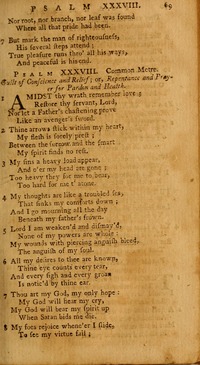 PSALM XXXVIII. 69
Nor root, nor branch, nor leaf was found
Where all that pride had been.
7 But mark the man of righteousness,
His several steps attend;
True pleasure runs thro' all his ways,
And peaceful is his end.
PSALM XXXVIII. Common Metre.
Guilt of Conscience and Relief; or, Repentance and Prayer
for Pardon and Health.
1 AMIDST thy wrath remember love,
Restore thy servant, Lord,
Nor let a Father's chastening prove
Like an avenger's sword.
2 Thine arrows stick within my heart,
My flesh is sorely prest;
Between the sorrow and the smart
My spirit finds no rest.
3 My sins a heavy load appear,
And o'er my head are gone;
Too heavy they for me to bear,
Too hard for me t' atone.
4 My thoughts are like a troubled sea,
That sinks my comforts down;
And I go mourning all the day
Beneath my father's frown.
5 Lord I am weaken'd and dismay'd,
None of my powers are whole:
My wounds with piercing anguish bleed,
The anguish of my soul.
6 All my desires to thee are known,
Thine eye counts every tear,
And every sigh and every groan
Is notic'd by thine ear.
7 Thou art my God, my only hope:
My God will hear my cry,
My God will bear my spirit up
When Satan bids me die.
8 My foes rejoice whene'er I slide,
To see my virtue fail;